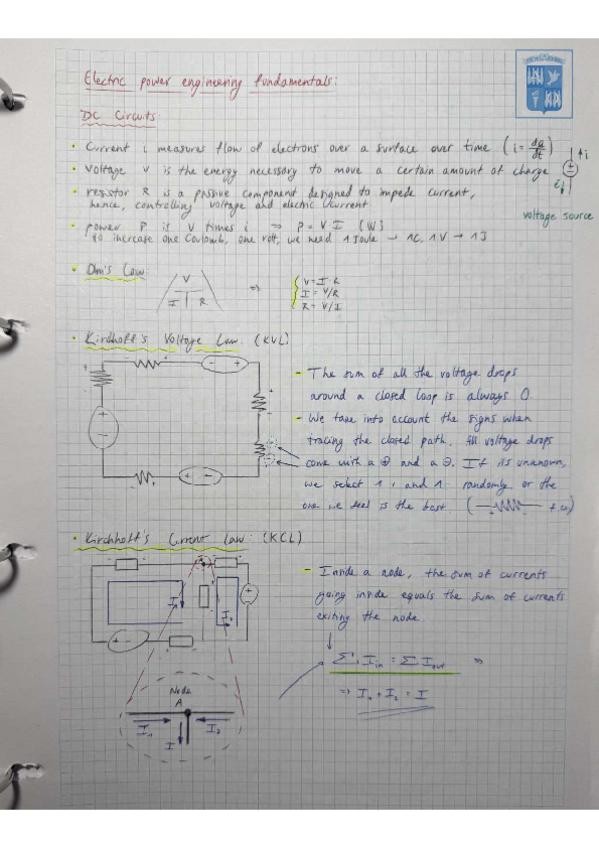 Electric power engineering fundamentals:
DC Circuits:
• Current i measures flow of electrons over a surface over time (i = dq/dt)
• Voltage V is the energy necessary to move a certain amount of charge
• resistor R is a passive component designed to impede current,
hence, controlling voltage and electric current
voltage source
• power P is V times i ⇒ P = V I (W)
to increase one Coulomb, one volt, we need 1 Joule → 1C, 1V → 1J
• Ohm's Law:
V
I R
⇒
V = I R
I = V/R
R = V/I
• Kirchhoff's Voltage Law (KVL)
– The sum of all the voltage drops
around a closed loop is always 0.
– We take into account the signs when
tracing the closed path. All voltage drops
come with a ⊕ and a ⊖. If its unknown,
we select randomly or the
one we feel is the best.
• Kirchhoff's Current Law: (KCL)
– Inside a node, the sum of currents
going inside equals the sum of currents
exiting the node.
Σ I in = Σ I out ⇒
⇒ I1 + I2 = I
Node
A
I1
I
I2